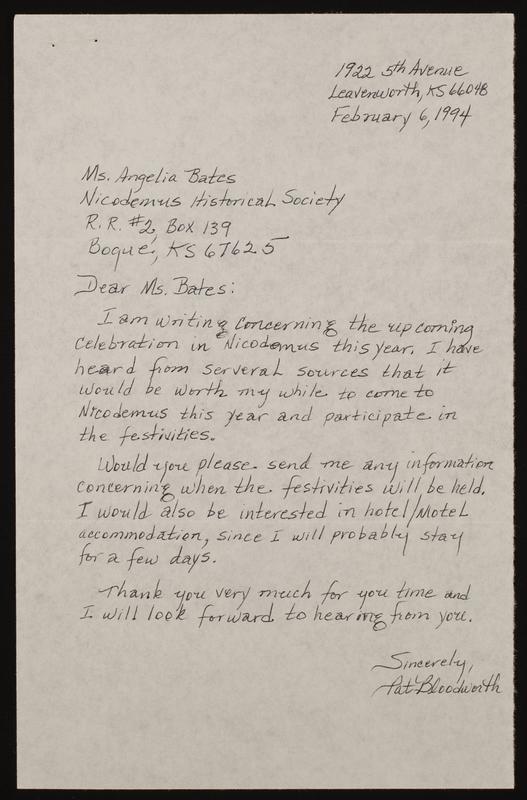 1922 5th Avenue
Leavenworth, KS 66048
February 6, 1994
Ms. Angelia Bates
Nicodemus Historical Society
R.R. #2, Box 139
Bogue, KS 67625
Dear Ms. Bates:
I am writing concerning the upcoming
celebration in Nicodemus this year. I have
heard from serveral sources that it
would be worth my while to come to
Nicodemus this year and participate in
the festivities.
Would you please send me any information
concerning when the festivities will be held.
I would also be interested in hotel/motel
accommodation, since I will probably stay
for a few days.
Thank you very much for you time and
I will look forward to hearing from you.
Sincerely,
Pat Bloodworth